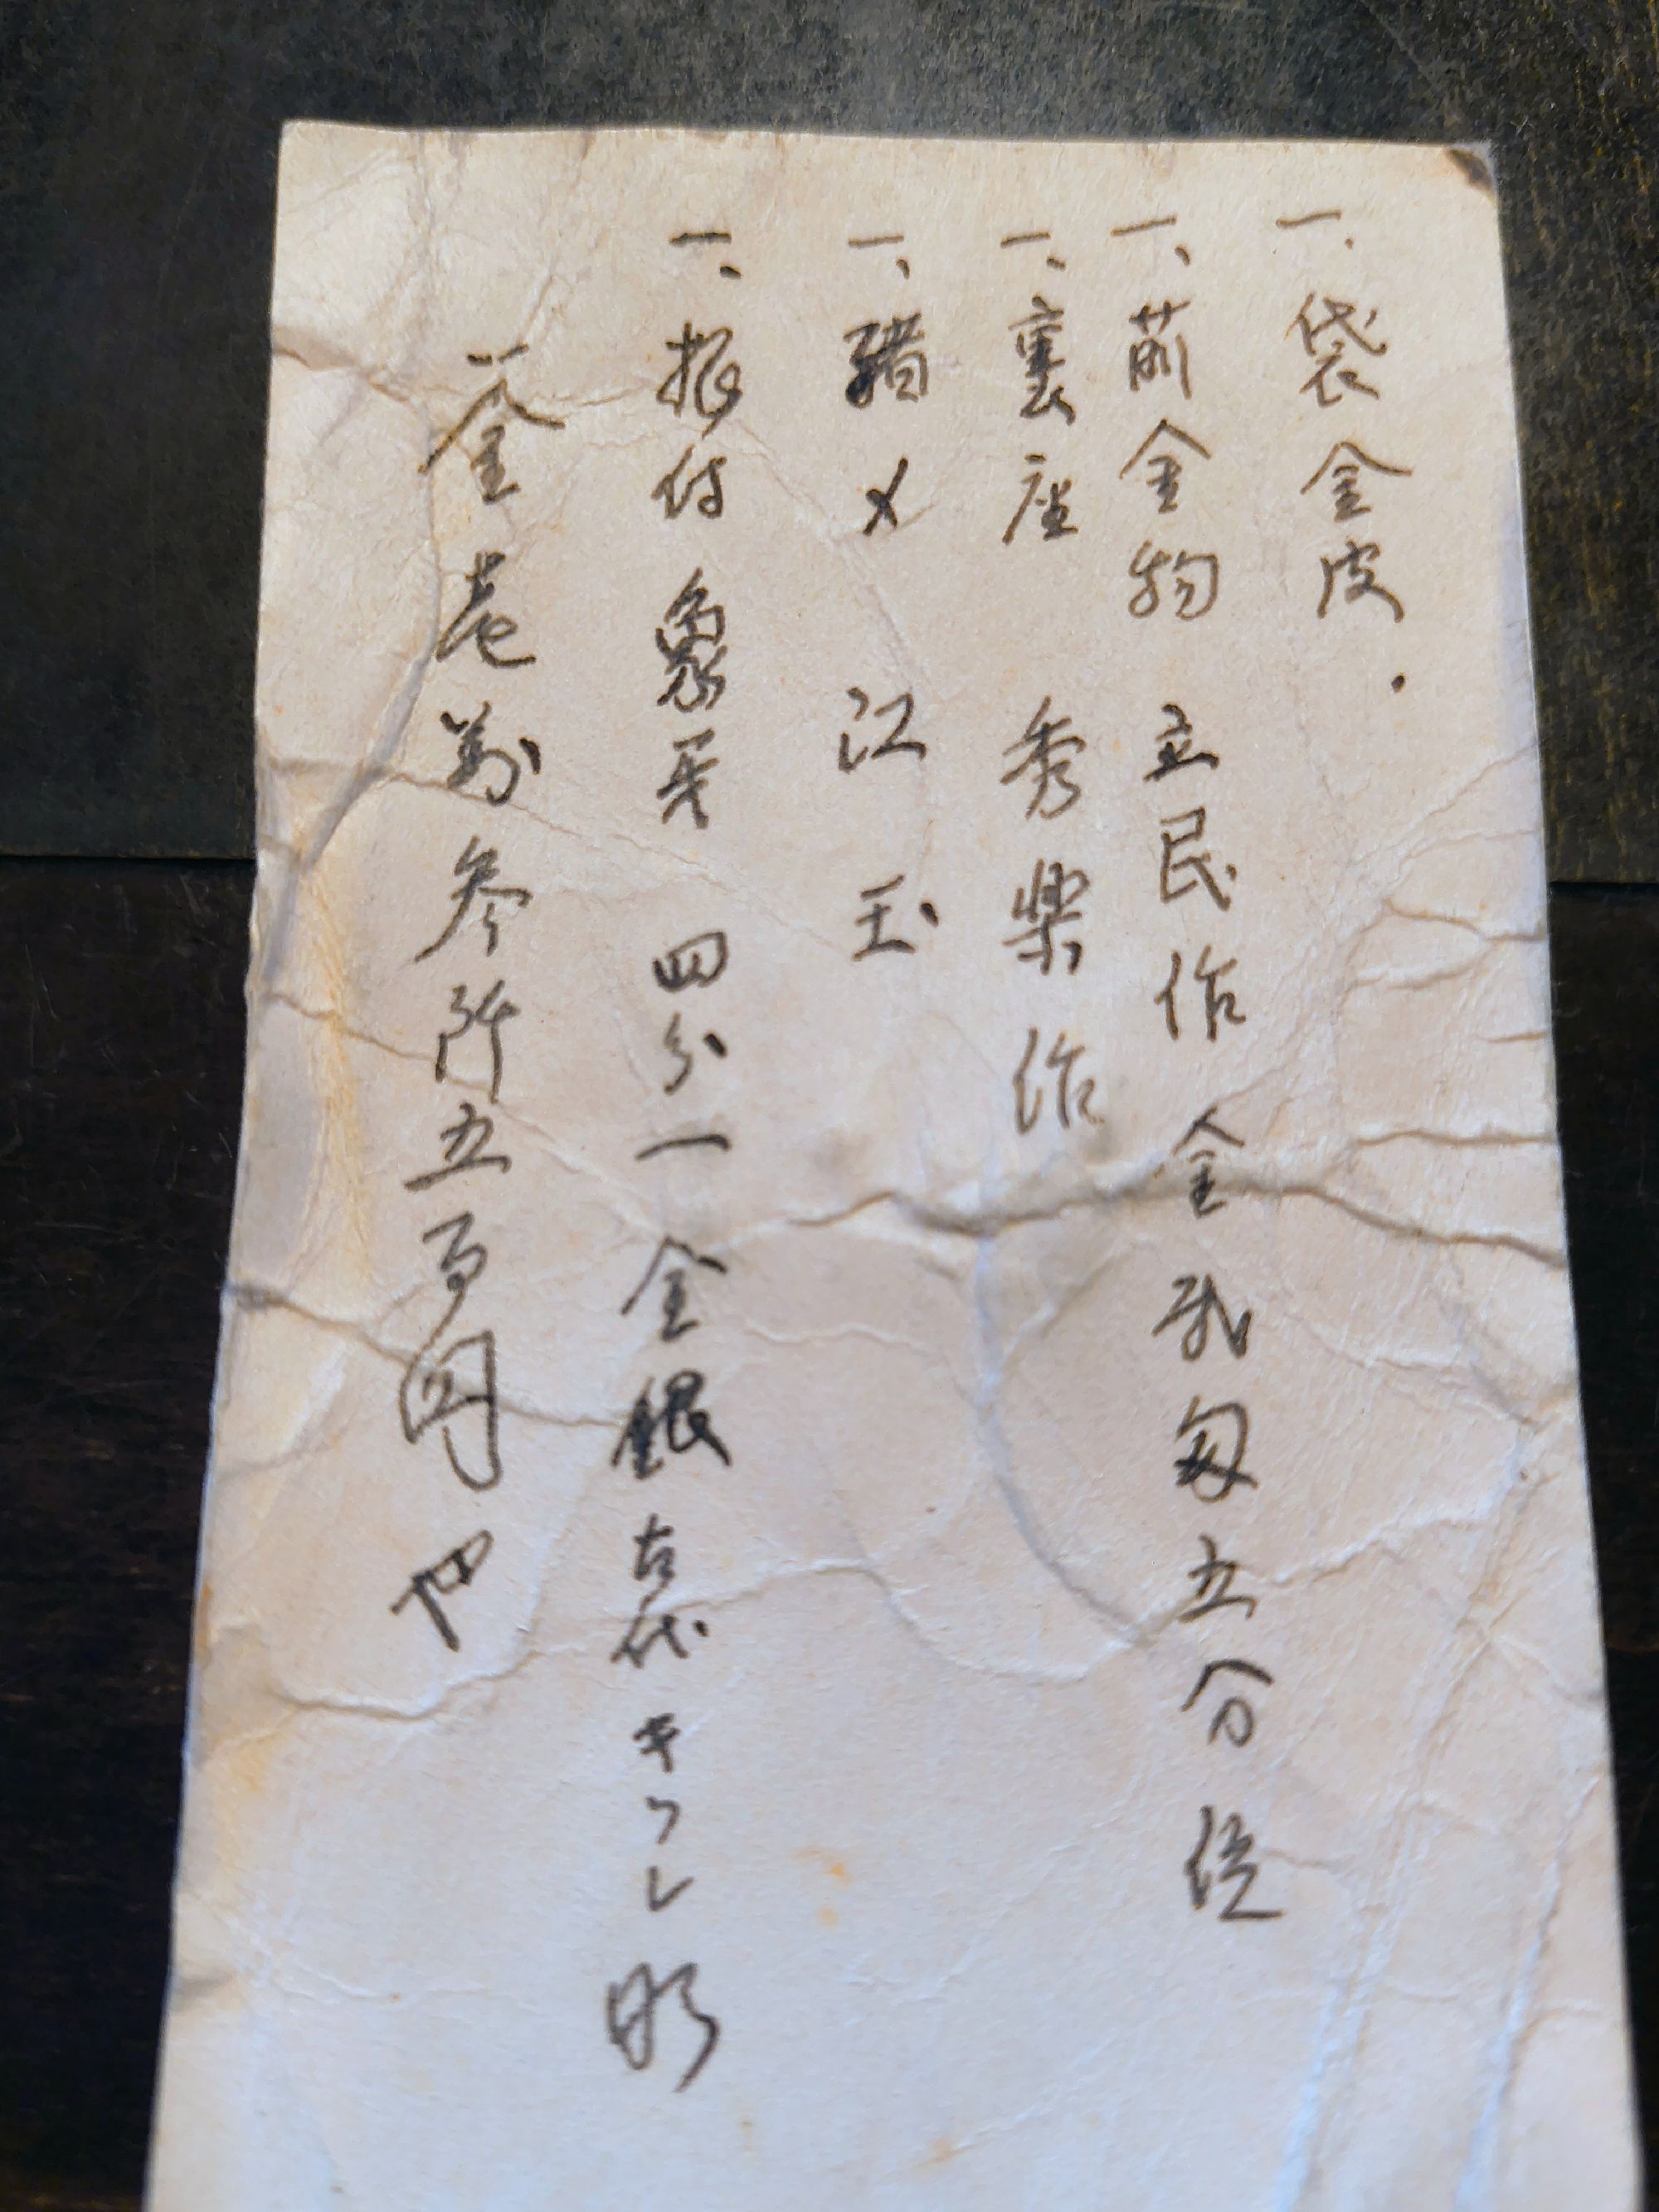 一、袋金皮.
一、前金物 立民作 金弐匁五分位
一、裏座 秀楽作
一、緒〆 江玉
一、根付 象牙 四分一金銀古代キフレ
一金壱萬参阡五百円也